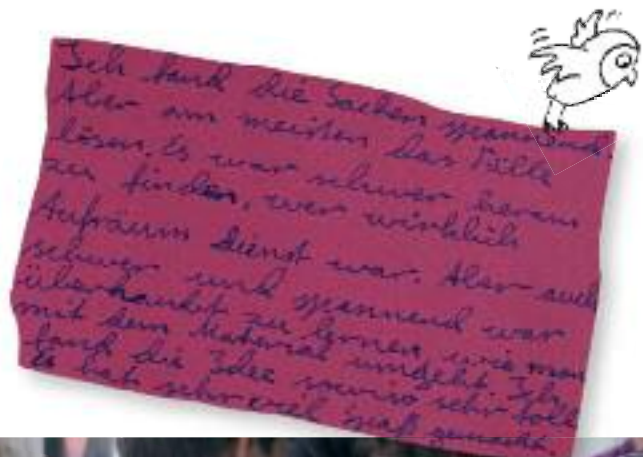 Ich fand die Sachen spannend.
Aber am meisten das Fälle
lösen. Es war schwer heraus
zu finden, wer wirklich
Aufräum dienst war. Aber auch
schwer und spannend war
überhaubt zu lernen, wie man
mit dem Material umgeht. Ich
fand die Idee sowiso sehr toll
Es hat sehr viel spaß gemacht.